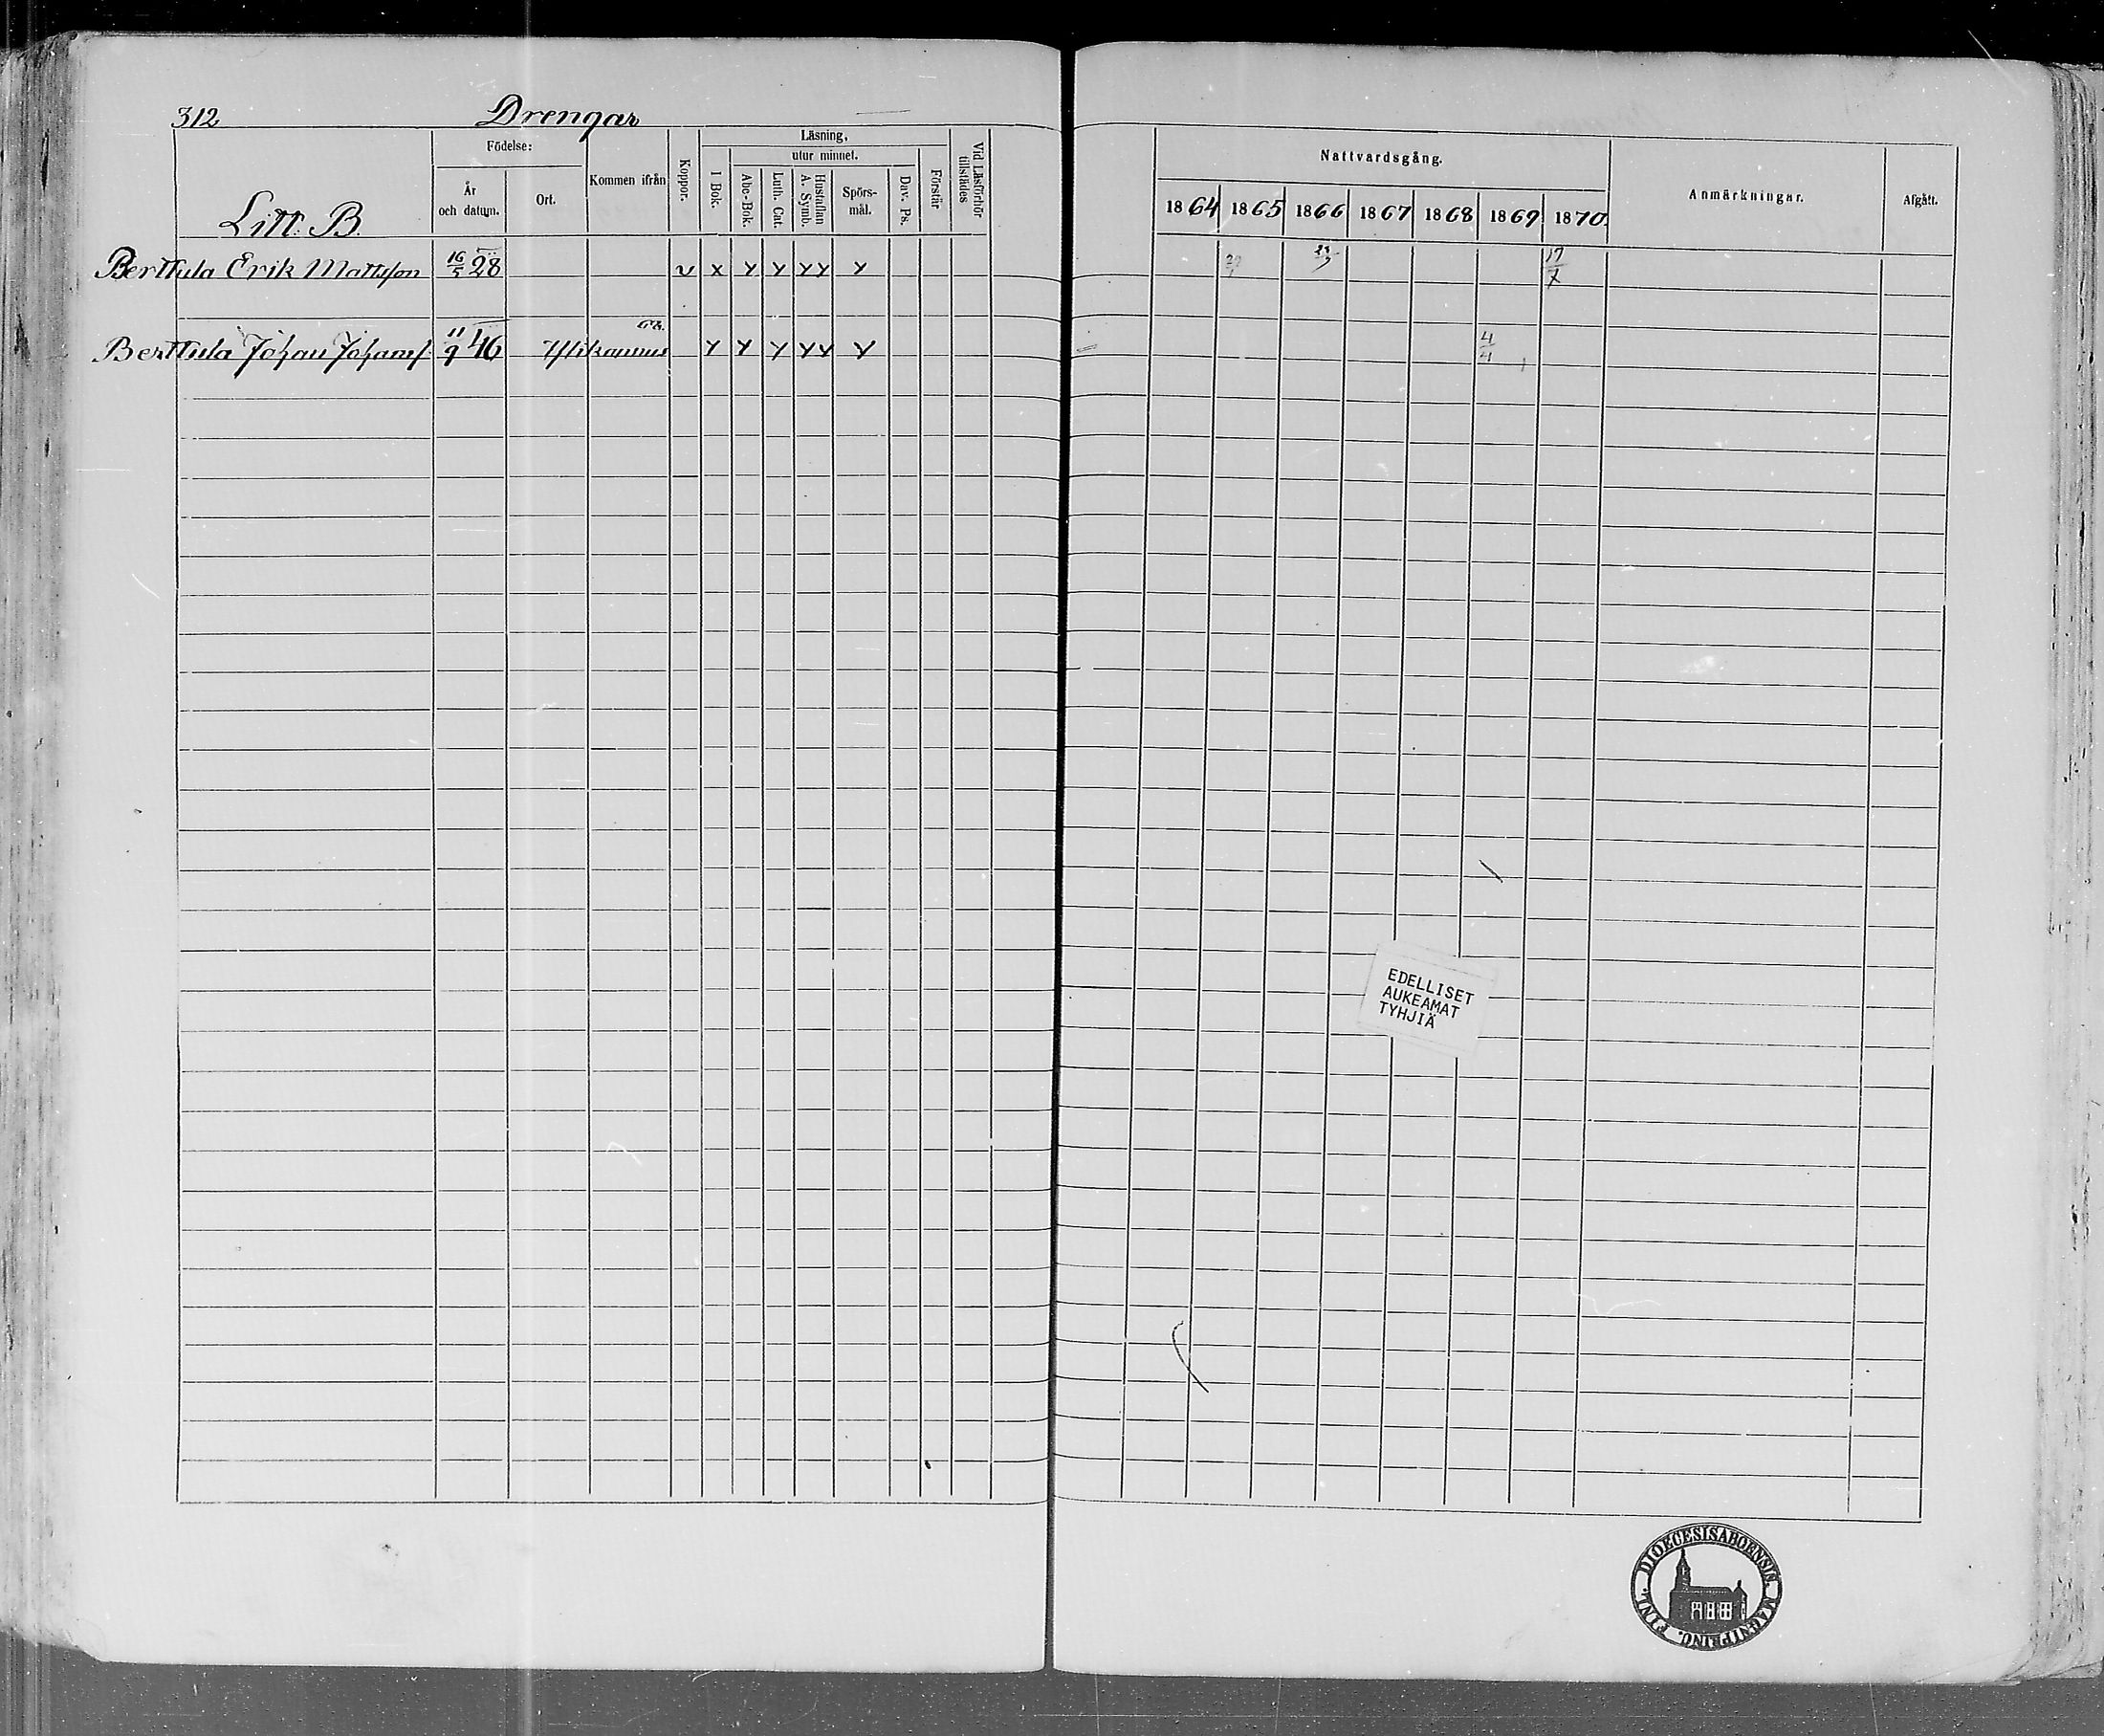 312 Drengar
Födelse: Läsning,
utur minnet.
Litt. B.
År och datum. Ort. Kommen ifrån Koppor. I Bok. Abc-Bok. Luth. Cat. Hustaflan A. Symb. Spörs-mål. Dav. Ps. Förstår Vid Läsförhör tillstädes
Nattvardsgång. Anmärkningar. Afgått.
1864 1865 1866 1867 1868 1869 1870.
Berttula Erik Mattsson 16/5 28 v x y y yy y 17/7
68.
Berttula Johan Johansf. 11/9 46 Ylikannus y y y yy y 4/4
EDELLISET
AUKEAMAT
TYHJIÄ
DIOECESIS ABOENSIS MAGNI PRINC. FINL.